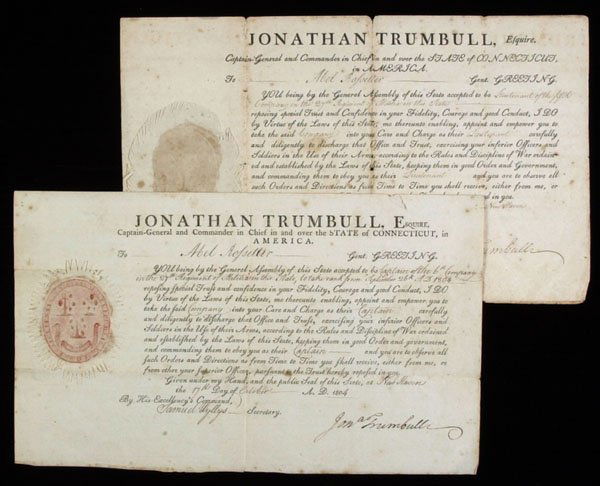 JONATHAN TRUMBULL, Esquire.
Captain-General and Commander in Chief in and over the STATE of CONNECTICUT,
in AMERICA.
To Abel Rossetter Gent. GREETING.
YOU being by the General Assembly of this State accepted to be Lieutenant of the
Company in the 27th Regiment of Militia in this State
reposing special Trust and Confidence in your Fidelity, Courage and good Conduct, I DO
by Virtue of the Laws of this State, me thereunto enabling, appoint and empower you to
take the said Company into your Care and Charge as their Lieutenant carefully
and diligently to discharge that Office and Trust, exercising your inferior Officers and
Soldiers in the Use of their Arms, according to the Rules and Discipline of War ordain-
ed and established by the Laws of this State, keeping them in good Order and Government,
and commanding them to obey you as their Lieutenant and you are to observe all
such Orders and Directions as from Time to Time you shall receive, either from me, or
in you.
New Haven
Trumbull
JONATHAN TRUMBULL, Esquire,
Captain-General and Commander in Chief in and over the STATE of CONNECTICUT, in
AMERICA.
To Abel Rossetter Gent. GREETING.
YOU being by the General Assembly of this State accepted to be Captain of the 6th Company
in the 27th Regiment of Militia in this State, to take rank from
reposing special Trust and confidence in your Fidelity, Courage and good Conduct, I DO
by Virtue of the Laws of this State, me thereunto enabling, appoint and empower you to
take the said Company into your Care and Charge as their Captain carefully
and diligently to discharge that Office and Trust, exercising your inferior Officers and
Soldiers in the Use of their Arms, according to the Rules and Discipline of War ordained
and established by the Laws of this State, keeping them in good Order and government,
and commanding them to obey you as their Captain and you are to observe all
such Orders and Directions as from Time to Time you shall receive, either from me, or
from other your Superior Officer, pursuant to the Trust hereby reposed in you.
Given under my Hand, and the public Seal of this State, at New Haven
the 17th Day of October A. D. 1804
By His Excellency's Command,
Samuel Wyllys Secretary.
Jonª Trumbull